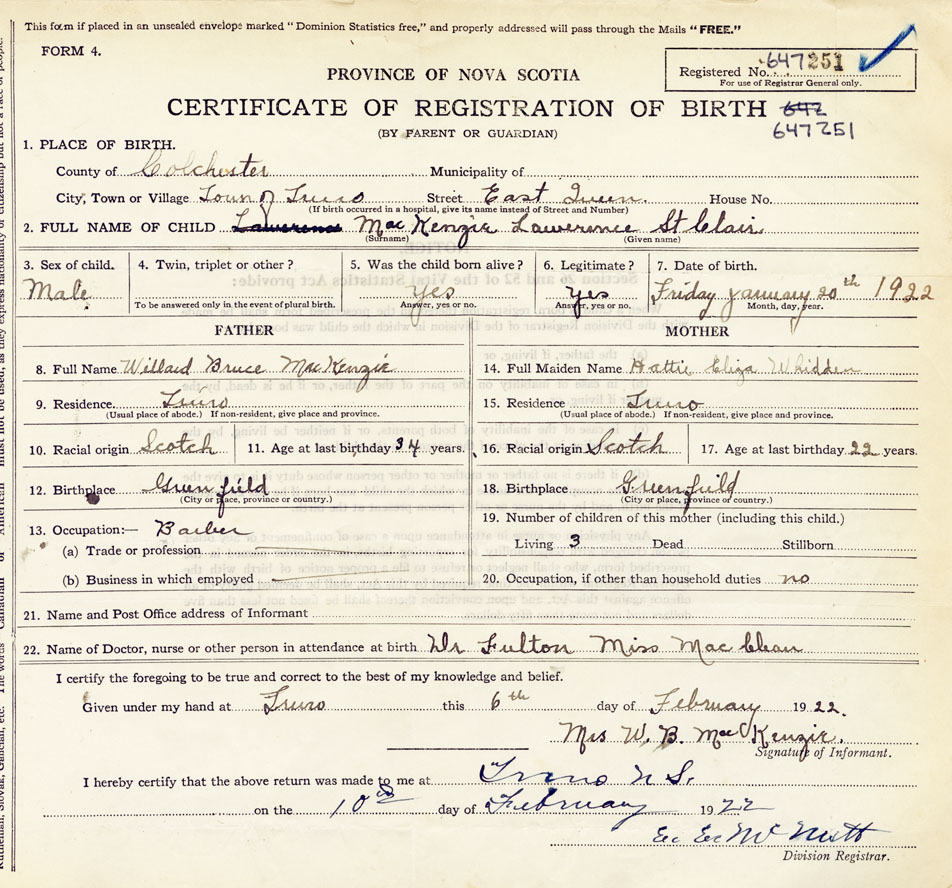 This form if placed in an unsealed envelope marked "Dominion Statistics free," and properly addressed will pass through the Mails "FREE."
FORM 4.
Registered No. 647251
For use of Registrar General only.
PROVINCE OF NOVA SCOTIA
CERTIFICATE OF REGISTRATION OF BIRTH 647
(BY PARENT OR GUARDIAN)
647251
1. PLACE OF BIRTH.
County of Colchester Municipality of
City, Town or Village Town of Truro Street East Queen. House No.
(If birth occurred in a hospital, give its name instead of Street and Number)
2. FULL NAME OF CHILD Lawerence MacKenzie Lawerence St Clair
(Surname) (Given name)
3. Sex of child. 4. Twin, triplet or other? 5. Was the child born alive? 6. Legitimate? 7. Date of birth.
Male yes yes Friday January 20th 1922
To be answered only in the event of plural birth. Answer, yes or no. Answer, yes or no. Month, day, year.
FATHER MOTHER
8. Full Name Willard Bruce MacKenzie 14. Full Maiden Name Hattie Eliza Whidden
9. Residence Truro 15. Residence Truro
(Usual place of abode.) If non-resident, give place and province. (Usual place of abode.) If non-resident, give place and province.
10. Racial origin Scotch 11. Age at last birthday 34 years. 16. Racial origin Scotch 17. Age at last birthday 22 years.
12. Birthplace Greenfield 18. Birthplace Greenfield
(City or place, province or country.) (City or place, province or country.)
13. Occupation:— Barber 19. Number of children of this mother (including this child.)
(a) Trade or profession Living 3 Dead Stillborn
(b) Business in which employed 20. Occupation, if other than household duties no
21. Name and Post Office address of Informant
22. Name of Doctor, nurse or other person in attendance at birth Dr Fulton Miss MacClean
I certify the foregoing to be true and correct to the best of my knowledge and belief.
Given under my hand at Truro this 6th day of February 1922.
Mrs W. B. MacKenzie.
Signature of Informant.
I hereby certify that the above return was made to me at Truro N.S.
on the 10th day of February 1922
E. E. McNutt
Division Registrar.